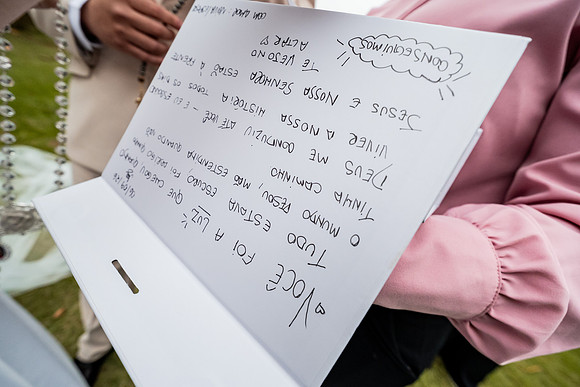 VOCÊ FOI A LUZ QUE CHEGOU QUANDO
TUDO ESTAVA ESCURO, FOI ABRIGO QUANDO
O MUNDO PESOU, MÃO ESTENDIDA QUANDO NÃO
TINHA CAMINHO
DEUS ME CONDUZIU ATÉ VOCÊ – E EU ESCOLHI
VIVER A NOSSA HISTÓRIA TODOS OS DIAS
JESUS E NOSSA SENHORA ESTÃO À FRENTE
CONSEGUIMOS
TE VEJO NO
ALTAR ♡
COM AMOR,